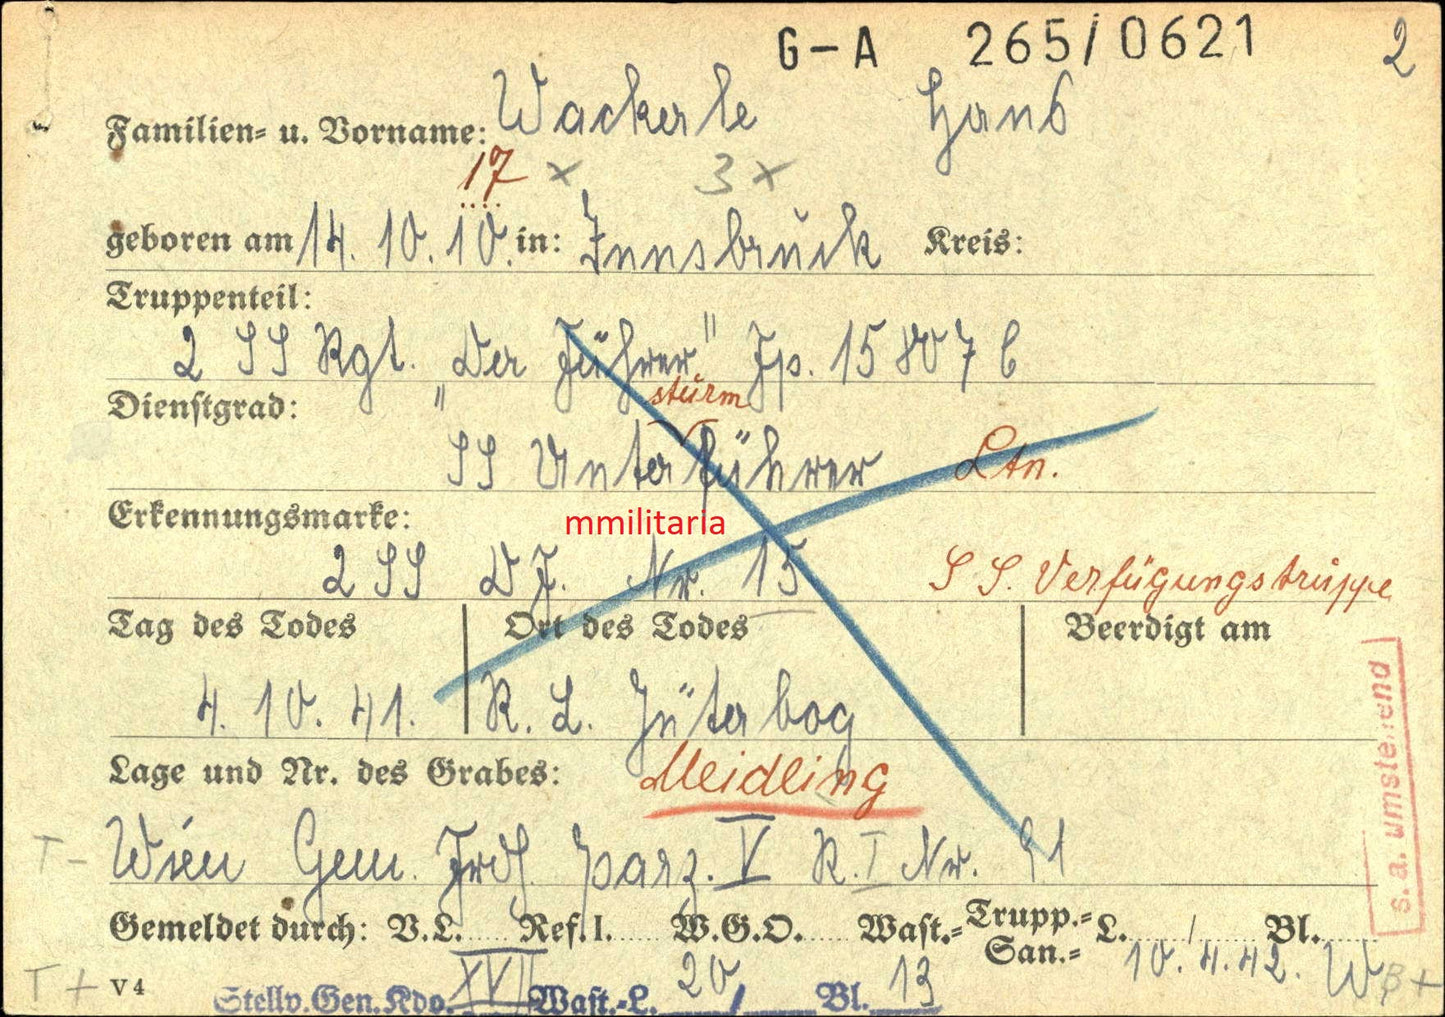 G-A 265/0621 2
Familien- u. Vorname: Wackerle Hans
17 x 3 x
geboren am 14. 10. 10. in: Innsbruck Kreis:
Truppenteil:
2 SS Rgt. "Der Führer" Fp. 15 807 C
Dienstgrad:
sturm
SS Unterführer Ltn.
Erkennungsmarke:
mmilitaria
2 SS D F. Nr. 15 SS. Verfügungstruppe
Tag des Todes Ort des Todes Beerdigt am
4. 10. 41. R. L. Jüterbog
Lage und Nr. des Grabes: Meidling
T- Wien Gem. Frdf. parz. V R. I Nr. 91
Gemeldet durch: V.L. Ref. I. W.G.O. Wast.- Trupp.- L. / Bl.
San.- 10. 4. 42.
T+ V4 Stellv. Gen. Kdo. XVII Wast.-L. 20/ Bl. 13 B+
s. a. umstehend